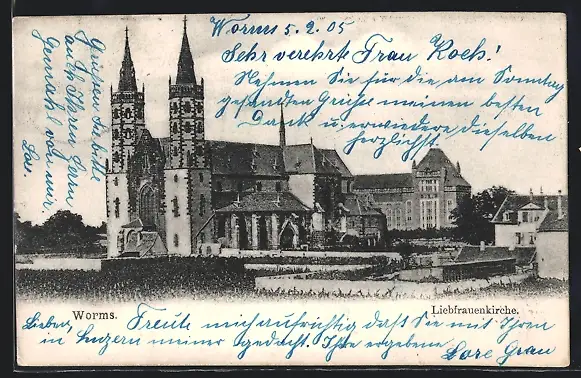 Worms 5.2.05
Sehr verehrte Frau Koch!
Nehmen Sie für die am Sonntag
gesandten Grüße meinen besten
Dank u. erwiedere dieselben
herzlichst
Grüßen Sie bitte
auch Ihren Herrn
Gemahl von mir
Worms.
Liebfrauenkirche.
Freute mich aufrichtig daß Sie mit Ihren
Lieben,
in Luzern meiner gedacht. Ihre ergebene
Lore Grau